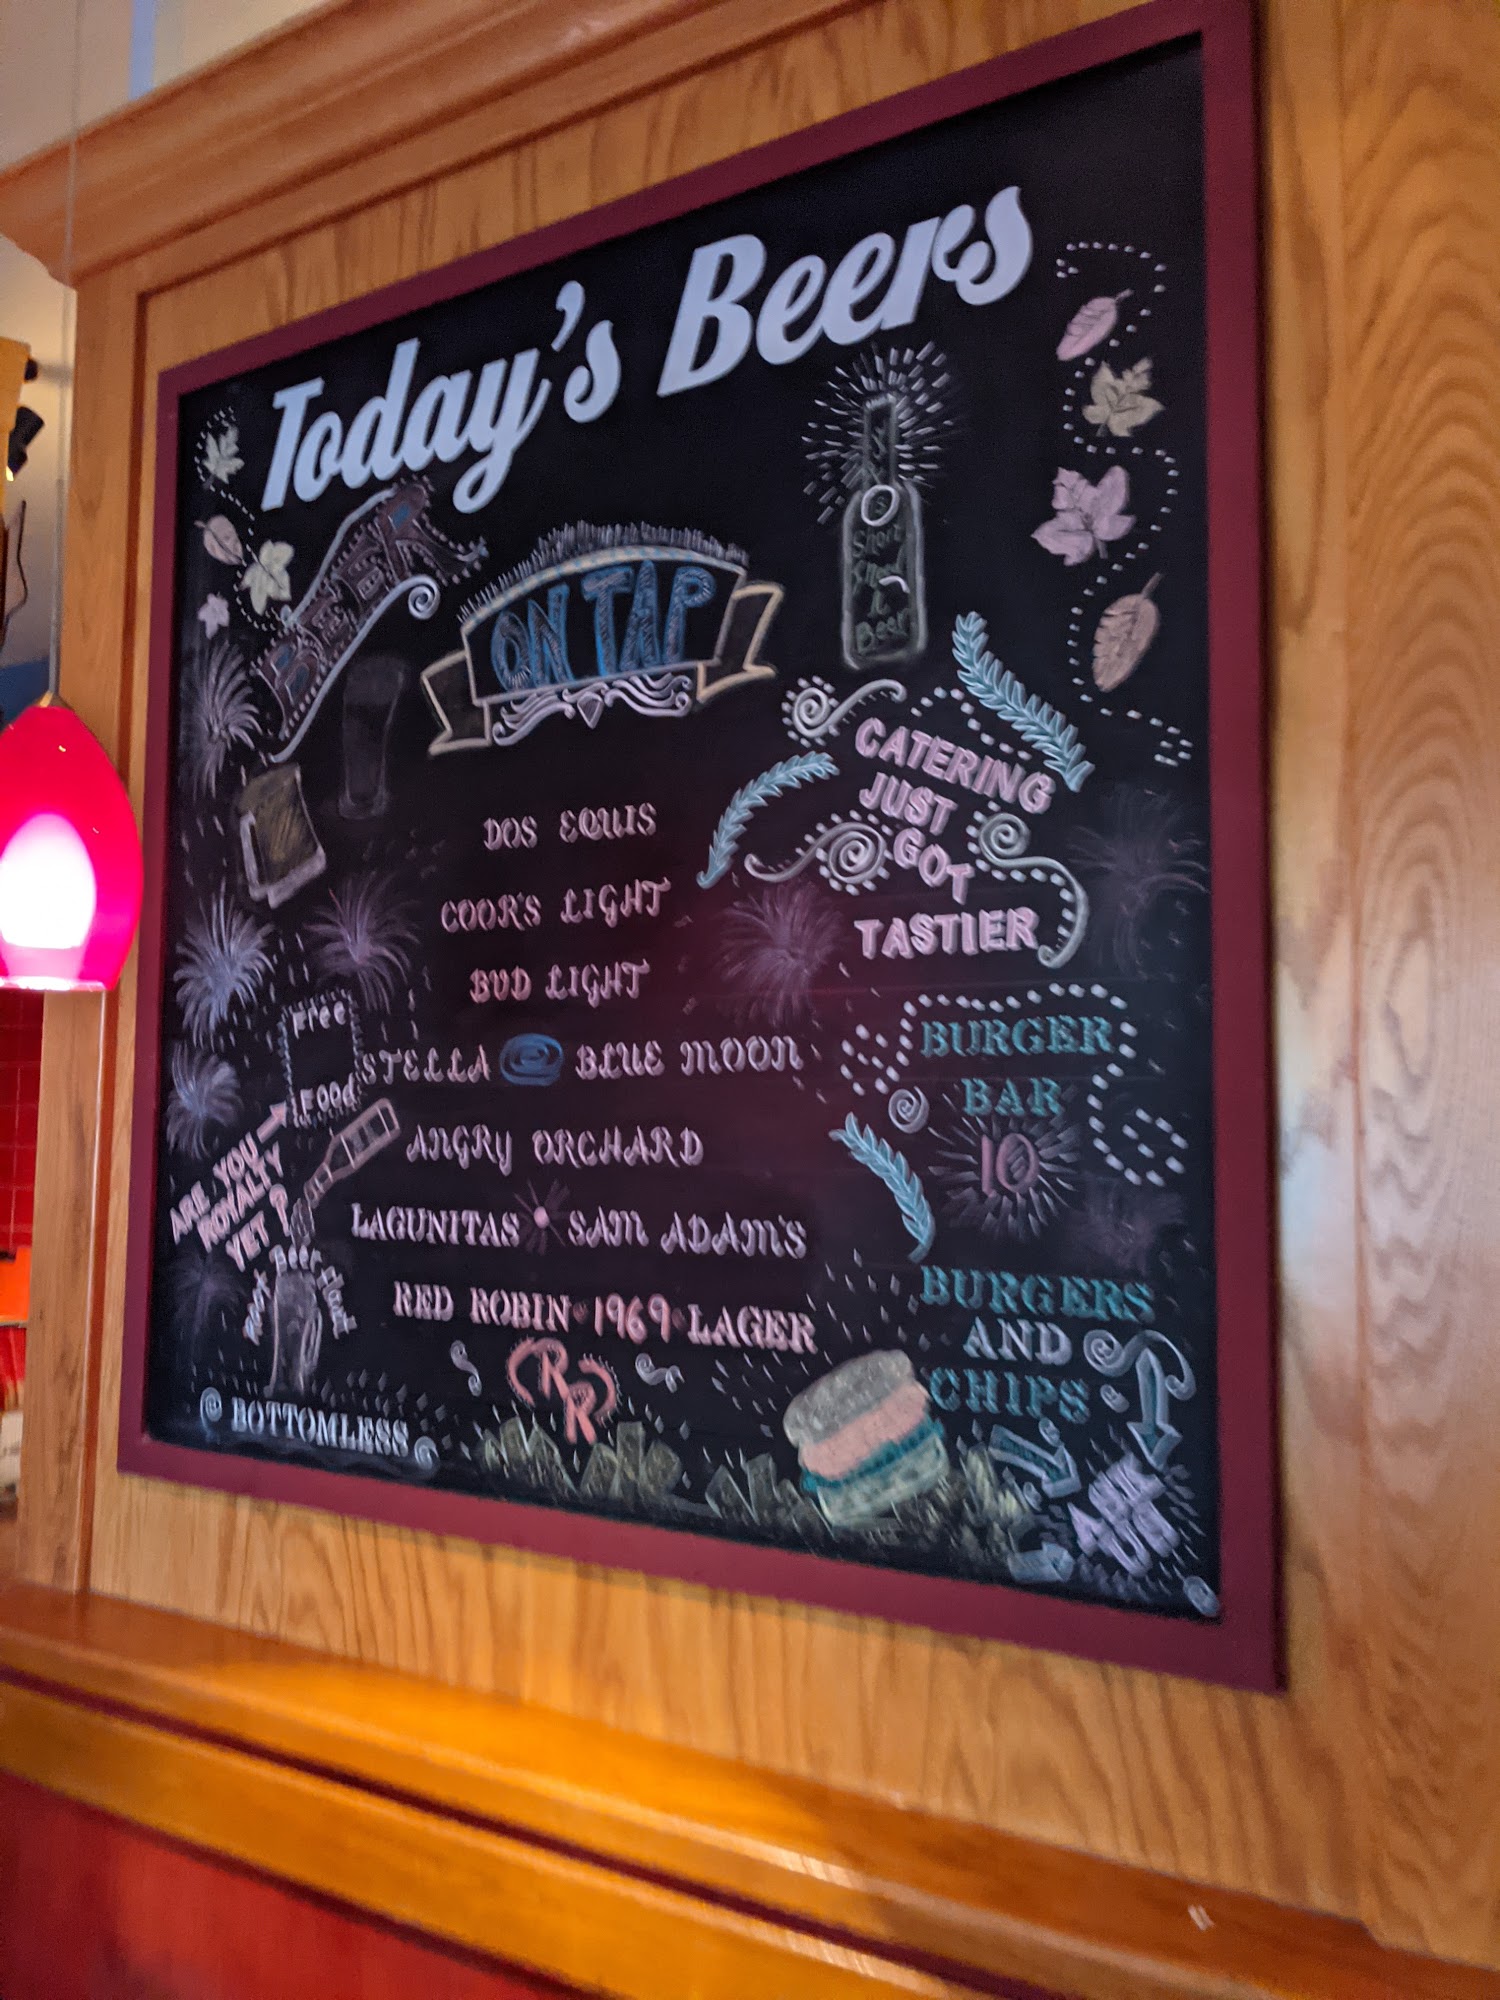 Today's Beers
ON TAP
Beer
CATERING
JUST
GOT
TASTIER
DOS EQUIS
COOR'S LIGHT
BUD LIGHT
STELLA BLUE MOON
ANGRY ORCHARD
LAGUNITAS SAM ADAM'S
RED ROBIN 1969 LAGER
RR
Free
Food
ARE YOU
ROYALTY
YET ?
Root Beer Float
BOTTOMLESS
BURGER
BAR
10
BURGERS
AND
CHIPS
ASK
US